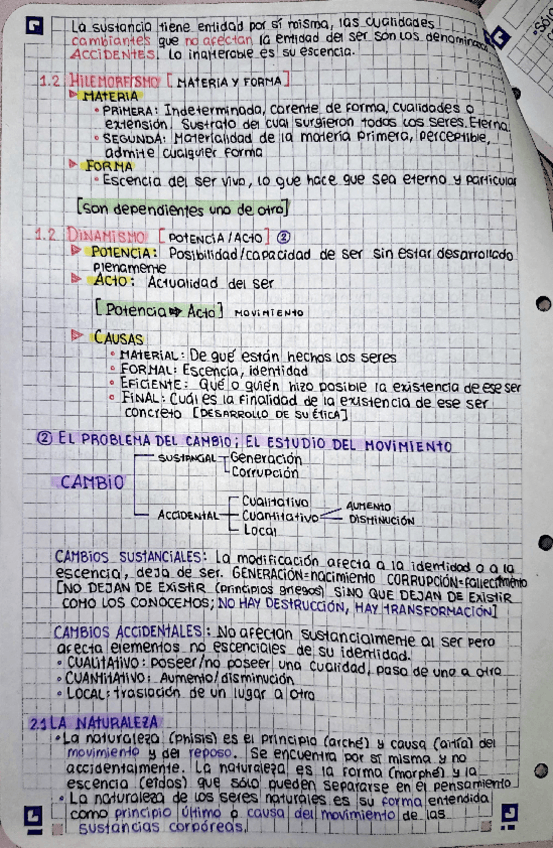 La sustancia tiene entidad por sí misma, las cualidades
cambiantes que no afectan la entidad del ser son los denominados
ACCIDENTES. Lo inalterable es su escencia.
1.2 HILEMORFISMO [MATERIA Y FORMA]
▷ MATERIA
• PRIMERA: Indeterminada, carente de forma, cualidades o
extensión. Sustrato del cual surgieron todos los seres. Eterna
• SEGUNDA: Materialidad de la materia primera, perceptible,
admite cualquier forma
▷ FORMA
• Escencia del ser vivo, lo que hace que sea eterno y particular
[Son dependientes uno de otro]
1.2 DINAMISMO [POTENCIA/ACTO] ②
▷ POTENCIA: Posibilidad/capacidad de ser sin estar desarrollado
plenamente
▷ ACTO: Actualidad del ser
[Potencia ⇨ Acto] MOVIMIENTO
▷ CAUSAS
• MATERIAL: De qué están hechos los seres
• FORMAL: Escencia, identidad
• EFICIENTE: Qué o quién hizo posible la existencia de ese ser
• FINAL: Cuál es la finalidad de la existencia de ese ser
concreto [DESARROLLO DE SU ÉTICA]
② EL PROBLEMA DEL CAMBIO; EL ESTUDIO DEL MOVIMIENTO
SUSTANCIAL Generación
Corrupción
CAMBIO
Cualitativo
ACCIDENTAL Cuantitativo AUMENTO
DISMINUCIÓN
Local
CAMBIOS SUSTANCIALES: La modificación afecta a la identidad o a la
escencia, deja de ser. GENERACIÓN=nacimiento CORRUPCIÓN=fallecimiento
[NO DEJAN DE EXISTIR (principios griegos) SINO QUE DEJAN DE EXISTIR
COMO LOS CONOCEMOS; NO HAY DESTRUCCIÓN, HAY TRANSFORMACIÓN]
CAMBIOS ACCIDENTALES: No afectan sustancialmente al ser pero
afecta elementos no escenciales de su identidad.
• CUALITATIVO: poseer/no poseer una cualidad, pasa de uno a otro
• CUANTITATIVO: Aumento/disminución
• LOCAL: traslación de un lugar a otro
2.1 LA NATURALEZA
• La naturaleza (phisis) es el principio (arché) y causa (aitía) del
movimiento y del reposo. Se encuentra por sí misma y no
accidentalmente. La naturaleza es la forma (morphé) y la
escencia (eidos) que sólo pueden separarse en el pensamiento
• La naturaleza de los seres naturales es su forma entendida
como principio último o causa del movimiento de las
sustancias corpóreas.